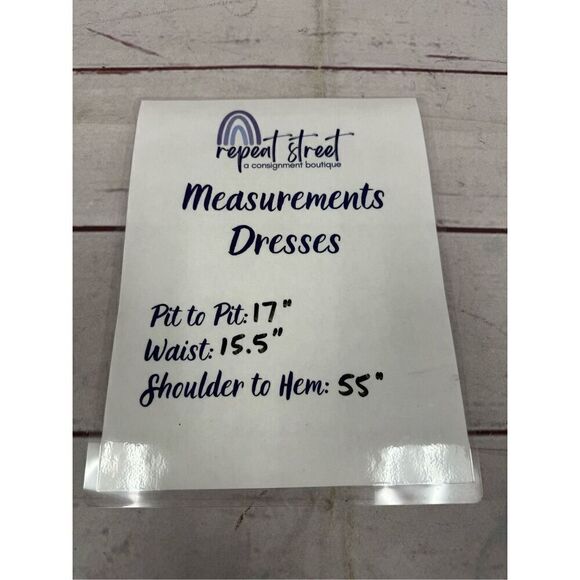 repeat street
a consignment boutique
Measurements
Dresses
Pit to Pit: 17"
Waist: 15.5"
Shoulder to Hem: 55"